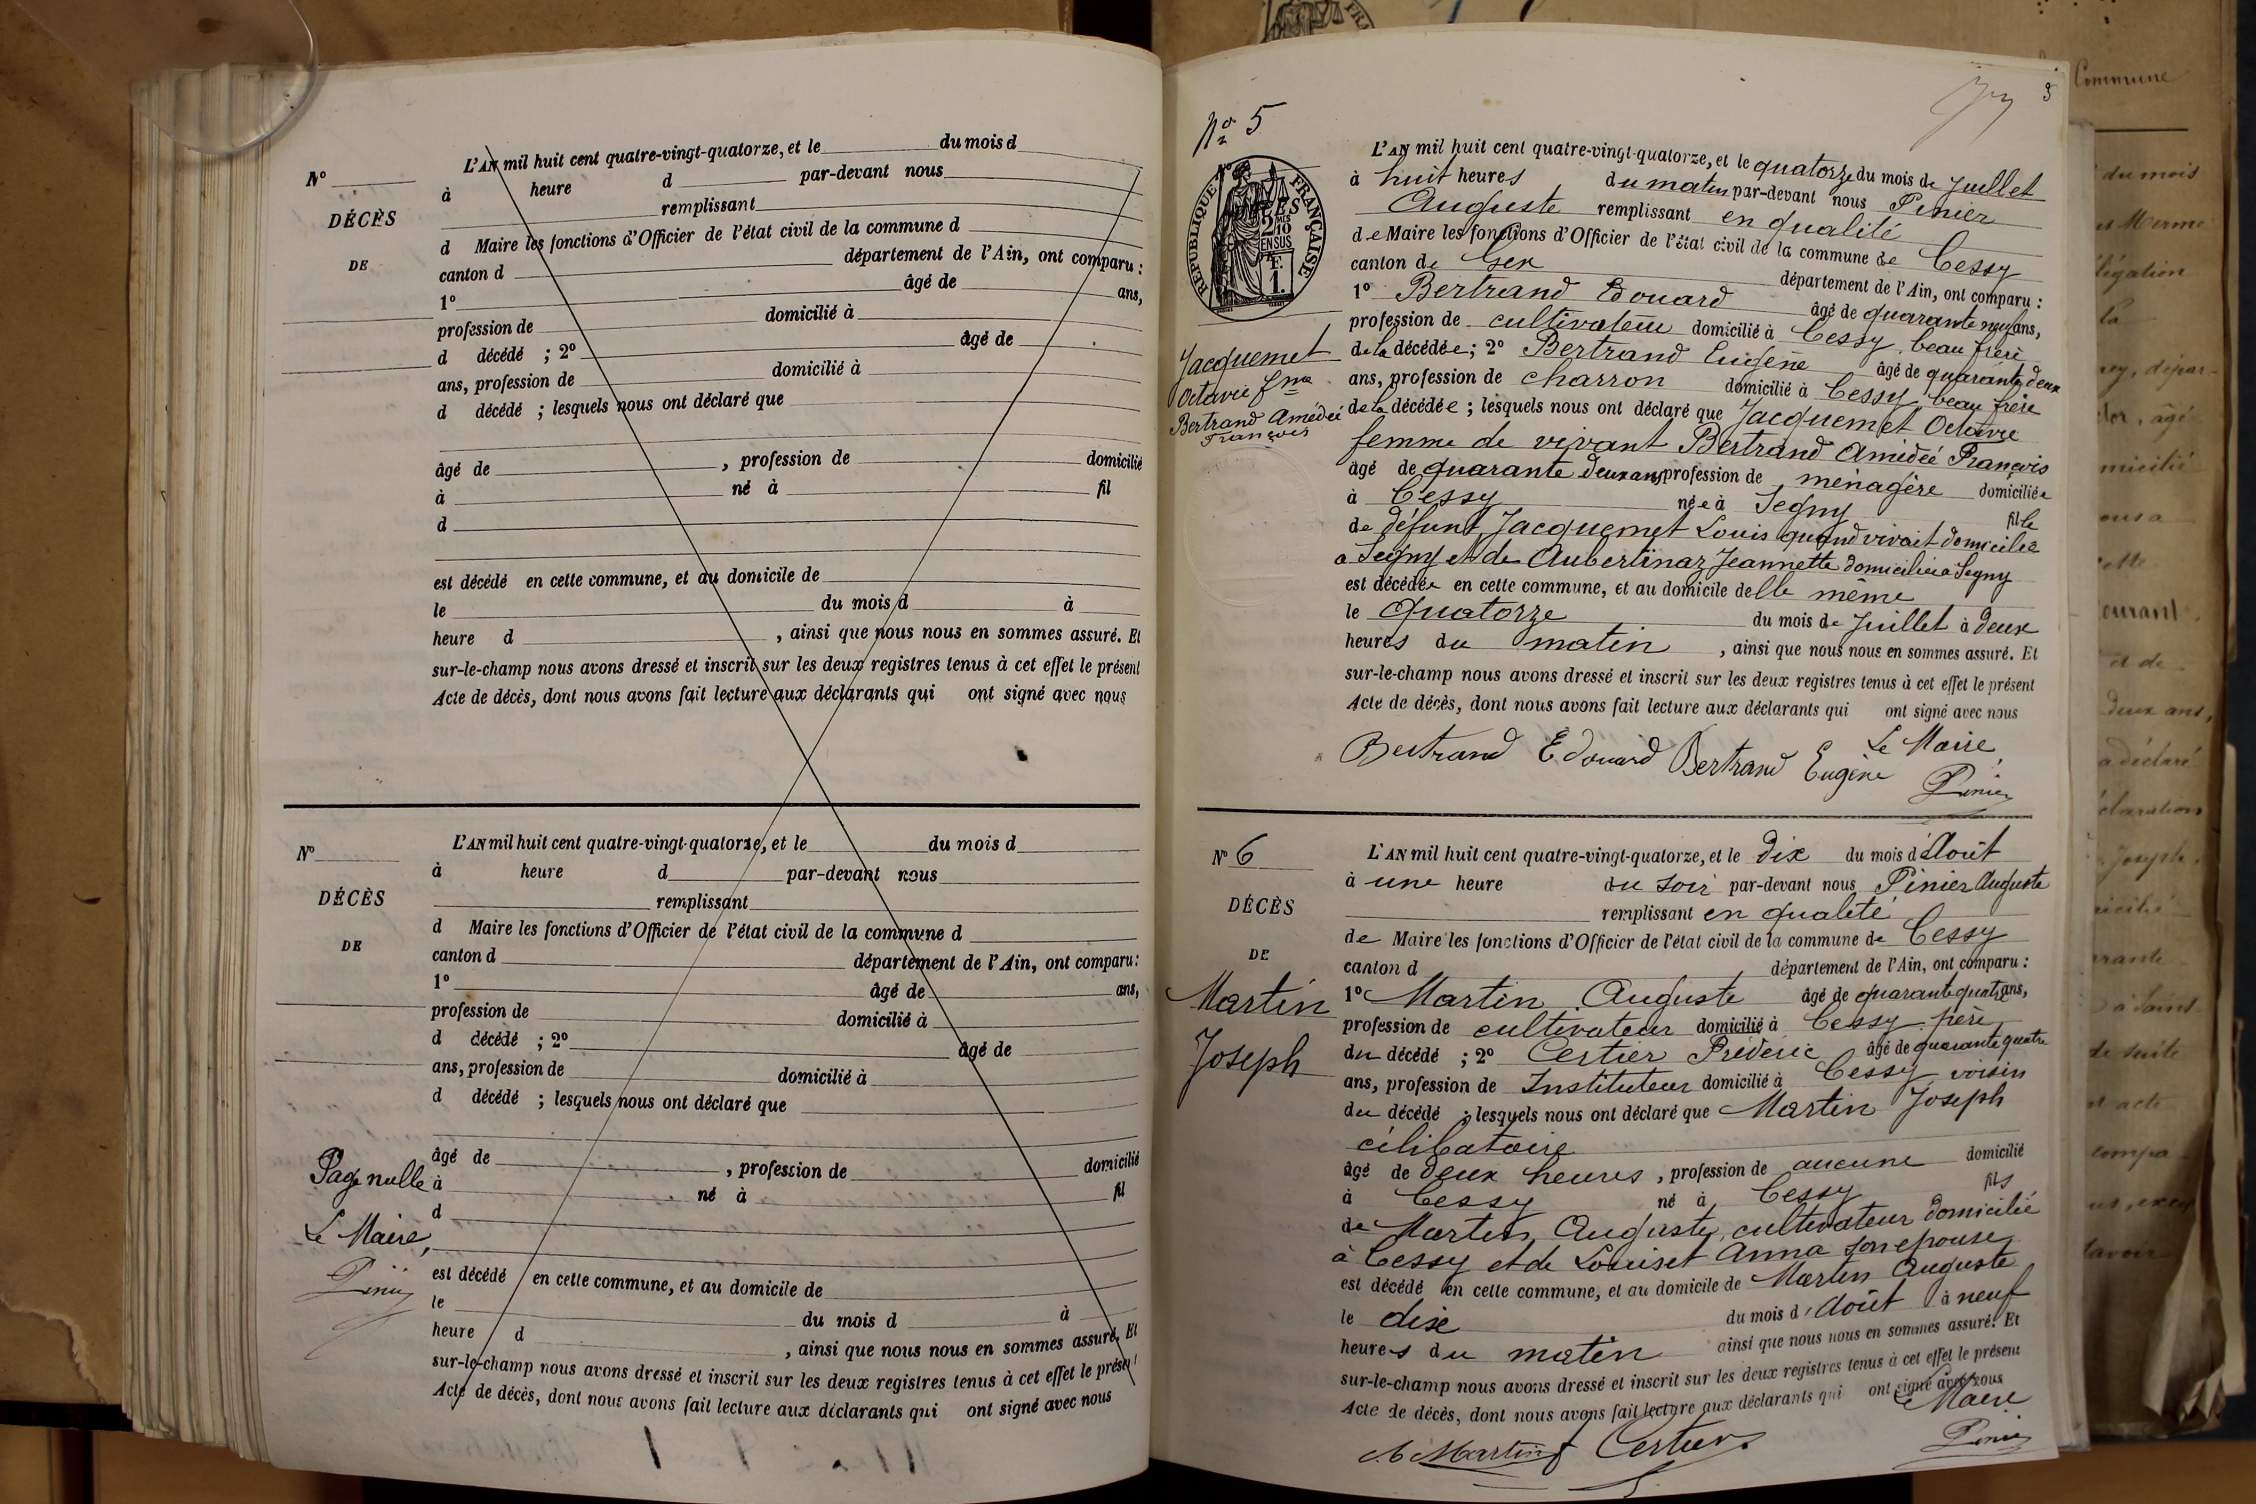 L'AN mil huit cent quatre-vingt-quatorze, et le du mois d
N° à heure d par-devant nous
DÉCÈS remplissant
d Maire les fonctions d'Officier de l'état civil de la commune d
DE canton d département de l'Ain, ont comparu :
1° âgé de ans,
profession de domicilié à
d décédé ; 2° âgé de
ans, profession de domicilié à
d décédé ; lesquels nous ont déclaré que
âgé de , profession de domicilié
à né à fil
d
est décédé en cette commune, et au domicile de
le du mois d à
heure d , ainsi que nous nous en sommes assuré. Et
sur-le-champ nous avons dressé et inscrit sur les deux registres tenus à cet effet le présent
Acte de décès, dont nous avons fait lecture aux déclarants qui ont signé avec nous
L'AN mil huit cent quatre-vingt-quatorze, et le du mois d
N° à heure d par-devant nous
DÉCÈS remplissant
d Maire les fonctions d'Officier de l'état civil de la commune d
DE canton d département de l'Ain, ont comparu :
1° âgé de ans,
profession de domicilié à
d décédé ; 2° âgé de
ans, profession de domicilié à
d décédé ; lesquels nous ont déclaré que
âgé de , profession de domicilié
Page nulle à né à fil
d
Le Maire,
est décédé en cette commune, et au domicile de
Pinier
le du mois d à
heure d , ainsi que nous nous en sommes assuré. Et
sur-le-champ nous avons dressé et inscrit sur les deux registres tenus à cet effet le présent
Acte de décès, dont nous avons fait lecture aux déclarants qui ont signé avec nous
N° 5
RÉPUBLIQUE FRANÇAISE
2/10 EN SUS
1 F.
L'AN mil huit cent quatre-vingt-quatorze, et le quatorze du mois de Juillet
à huit heures du matin par-devant nous Pinier
Auguste remplissant en qualité
de Maire les fonctions d'Officier de l'état civil de la commune de Cessy
canton de Gex département de l'Ain, ont comparu :
1° Bertrand Edouard âgé de quarante neuf ans,
profession de cultivateur domicilié à Cessy, beau frère
de la décédée ; 2° Bertrand Eugène âgé de quarante deux
ans, profession de charron domicilié à Cessy, beau frère
de la décédée ; lesquels nous ont déclaré que Jacquemet Octavie
Jacquemet
Octavie fme
Bertrand Amédeé
François
femme de vivant Bertrand Amédeé François
âgé de quarante deux ans profession de ménagère domiciliée
à Cessy née à Segny fille
de défunt Jacquemet Louis quand vivait domicilié
a Segny et de Aubertinaz Jeannette domiciliée a Segny
est décédée en cette commune, et au domicile delle même
le quatorze du mois de Juillet à deux
heures du matin , ainsi que nous nous en sommes assuré. Et
sur-le-champ nous avons dressé et inscrit sur les deux registres tenus à cet effet le présent
Acte de décès, dont nous avons fait lecture aux déclarants qui ont signé avec nous
Bertrand Edouard Bertrand Eugène Le Maire,
Pinier
N° 6 L'AN mil huit cent quatre-vingt-quatorze, et le dix du mois d'Août
à une heure du soir par-devant nous Pinier Auguste
DÉCÈS remplissant en qualité
de Maire les fonctions d'Officier de l'état civil de la commune de Cessy
DE canton d département de l'Ain, ont comparu :
Martin 1° Martin Auguste âgé de quarante quatre ans,
profession de cultivateur domicilié à Cessy père
Joseph du décédé ; 2° Certier Fréderic âgé de quarante quatre
ans, profession de Instituteur domicilié à Cessy voisin
du décédé ; lesquels nous ont déclaré que Martin Joseph
célibataire
âgé de deux heures , profession de aucune domicilié
à Cessy né à Cessy fils
de Martin Auguste, cultivateur domicilié
à Cessy et de Louiset Anna son epouse
est décédé en cette commune, et au domicile de Martin Auguste
le dix du mois d'Août à neuf
heures du matin ainsi que nous nous en sommes assuré. Et
sur-le-champ nous avons dressé et inscrit sur les deux registres tenus à cet effet le présent
Acte de décès, dont nous avons fait lecture aux déclarants qui ont signé avec nous
Le Maire
Martin Certier Pinier
Commune
du mois
légation
la
courant
et de
deux ans,
a déclaré
Joseph
de suite
acte
compa